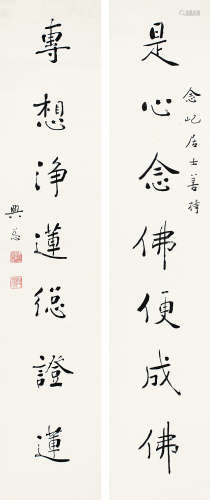 念屺居士善持
是心念佛便成佛
專想淨蓮緫證蓮
興慈